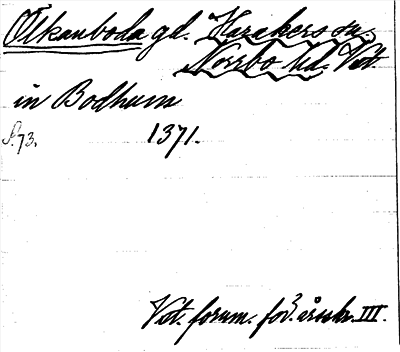 Ölkanboda gd. Harakers sn.
Norrbo hd. Vst.
in Bodhum
S. 73. 1371.
Vst. fornm. för. årsskr. III.